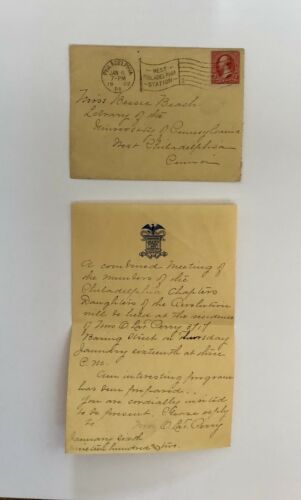 PHILADELPHIA
JAN 6
7-PM
1902
PA
WEST
PHILADELPHIA
STATION
Miss Bessie Beach
Library of the
University of Pennsylvania
West Philadelphia
A combined meeting of
the members of the
Philadelphia Chapters
Daughters of the Revolution
will be held at the residence
of Mrs D. Perry
Baring Street on Thursday
January sixteenth at three
P.M.
An interesting program
has been prepared.
You are cordially invited
to be present. Please reply
to Mrs D. Perry
January sixth
nineteen hundred & two.